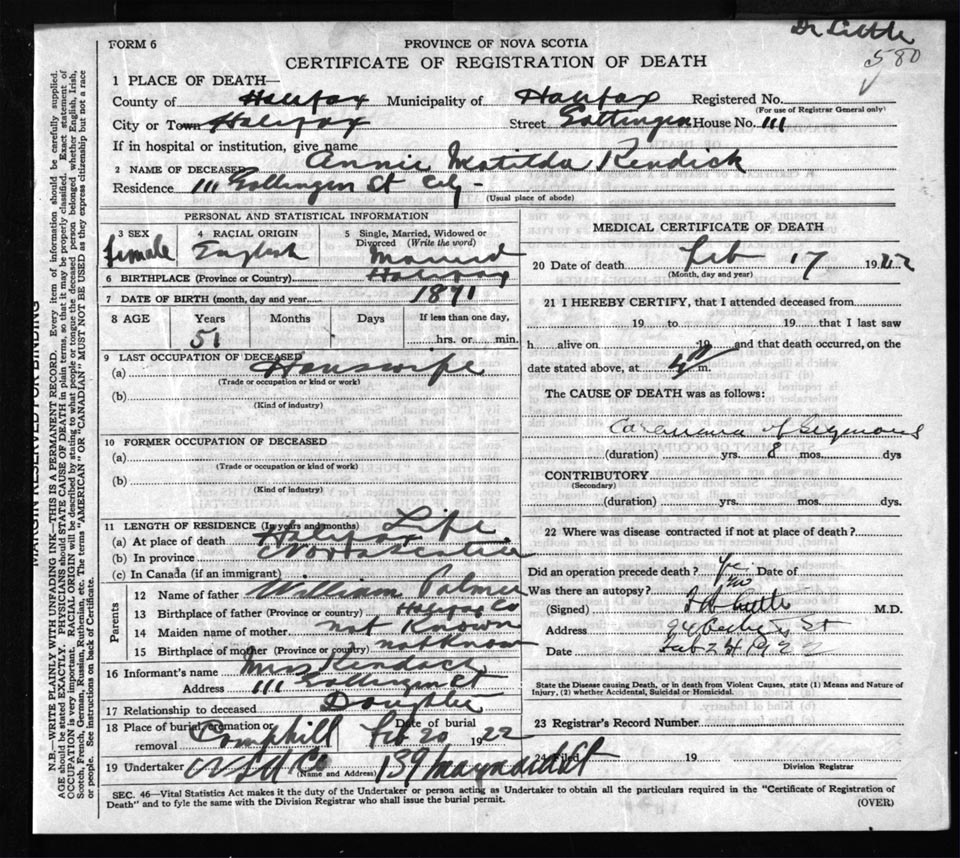 Dr Little
580
FORM 6
PROVINCE OF NOVA SCOTIA
CERTIFICATE OF REGISTRATION OF DEATH
1 PLACE OF DEATH—
County of Halifax Municipality of Halifax Registered No.
(For use of Registrar General only)
City or Town Halifax Street Gottingen House No. 111
If in hospital or institution, give name
2 NAME OF DECEASED Annie Matilda Kendick
Residence 111 Gottingen St City -
(Usual place of abode)
PERSONAL AND STATISTICAL INFORMATION
3 SEX 4 RACIAL ORIGIN 5 Single, Married, Widowed or Divorced (Write the word)
female English Married
6 BIRTHPLACE (Province or Country) Halifax
7 DATE OF BIRTH (month, day and year) 1871
8 AGE Years Months Days If less than one day,
51 hrs. or min.
9 LAST OCCUPATION OF DECEASED
(a) Houswife
(Trade or occupation or kind or work)
(b)
(Kind of industry)
10 FORMER OCCUPATION OF DECEASED
(a)
(Trade or occupation or kind of work)
(b)
(Kind of industry)
11 LENGTH OF RESIDENCE (In years and months) Life
(a) At place of death Halifax
(b) In province Nova Scotia
(c) In Canada (if an immigrant)
Parents
12 Name of father William Palmer
13 Birthplace of father (Province or Country) Halifax Co
14 Maiden name of mother not Known
15 Birthplace of mother (Province or country) not Know
16 Informant's name Miss
Address 111 Gottingen St
17 Relationship to deceased Daughter
18 Place of burial, cremation or removal Camphill Date of burial Feb 20 1922
19 Undertaker N S U Co 139 Maynard St
(Name and Address)
MEDICAL CERTIFICATE OF DEATH
20 Date of death Feb 17 1922
(Month, day and year)
21 I HEREBY CERTIFY, that I attended deceased from
19 to 19 that I last saw
h alive on 19 and that death occurred, on the
date stated above, at m.
The CAUSE OF DEATH was as follows:
Carcinoma of Sigmoid
(duration) yrs. 8 mos. dys
CONTRIBUTORY
(Secondary)
(duration) yrs. mos. dys.
22 Where was disease contracted if not at place of death?
Did an operation precede death? Yes Date of
Was there an autopsy? no
(Signed) Little M.D.
Address St
Date Feb 1922
State the Disease causing Death, or in death from Violent Causes, state (1) Means and Nature of
Injury, (2) whether Accidental, Suicidal or Homicidal.
23 Registrar's Record Number
24 Filed 19
Division Registrar
SEC. 46—Vital Statistics Act makes it the duty of the Undertaker or person acting as Undertaker to obtain all the particulars required in the "Certificate of Registration of
Death" and to fyle the same with the Division Registrar who shall issue the burial permit.
(OVER)
MARGIN RESERVED FOR BINDING
N.B.—WRITE PLAINLY WITH UNFADING INK—THIS IS A PERMANENT RECORD. Every item of information should be carefully supplied.
AGE should be stated EXACTLY. PHYSICIANS should STATE CAUSE OF DEATH in plain terms, so that it may be properly classified. Exact statement of
OCCUPATION is very important. RACIAL ORIGIN will be described by stating to what people or tongue the deceased person belonged whether English, Irish,
Scotch, French, German, Russian, Ruthenian, etc. The terms "AMERICAN" OR "CANADIAN" MUST NOT BE USED as they express citizenship but not a race
or people. See instructions on back of Certificate.